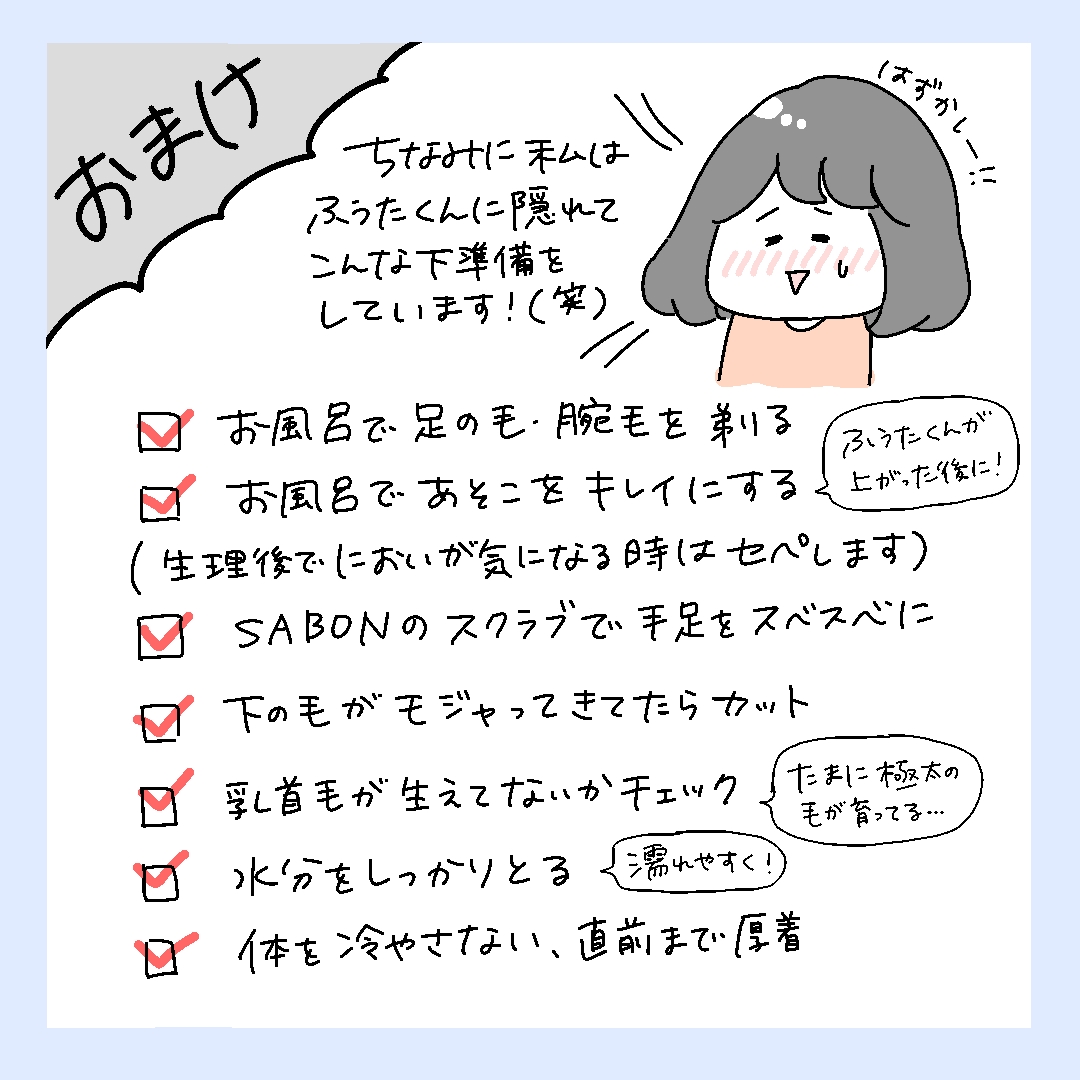 おまけ
はずかしー!!
ちなみに私は
ふうたくんに隠れて
こんな下準備を
しています!(笑)
お風呂で足の毛・腕毛を剃る
ふうたくんが
上がった後に!
お風呂であそこをキレイにする
(生理後でにおいが気になる時はセペします)
SABONのスクラブで手足をスベスベに
下の毛がモジャってきてたらカット
乳首毛が生えてないかチェック
たまに極太の
毛が育ってる…
水分をしっかりとる
濡れやすく!
体を冷やさない、直前まで厚着